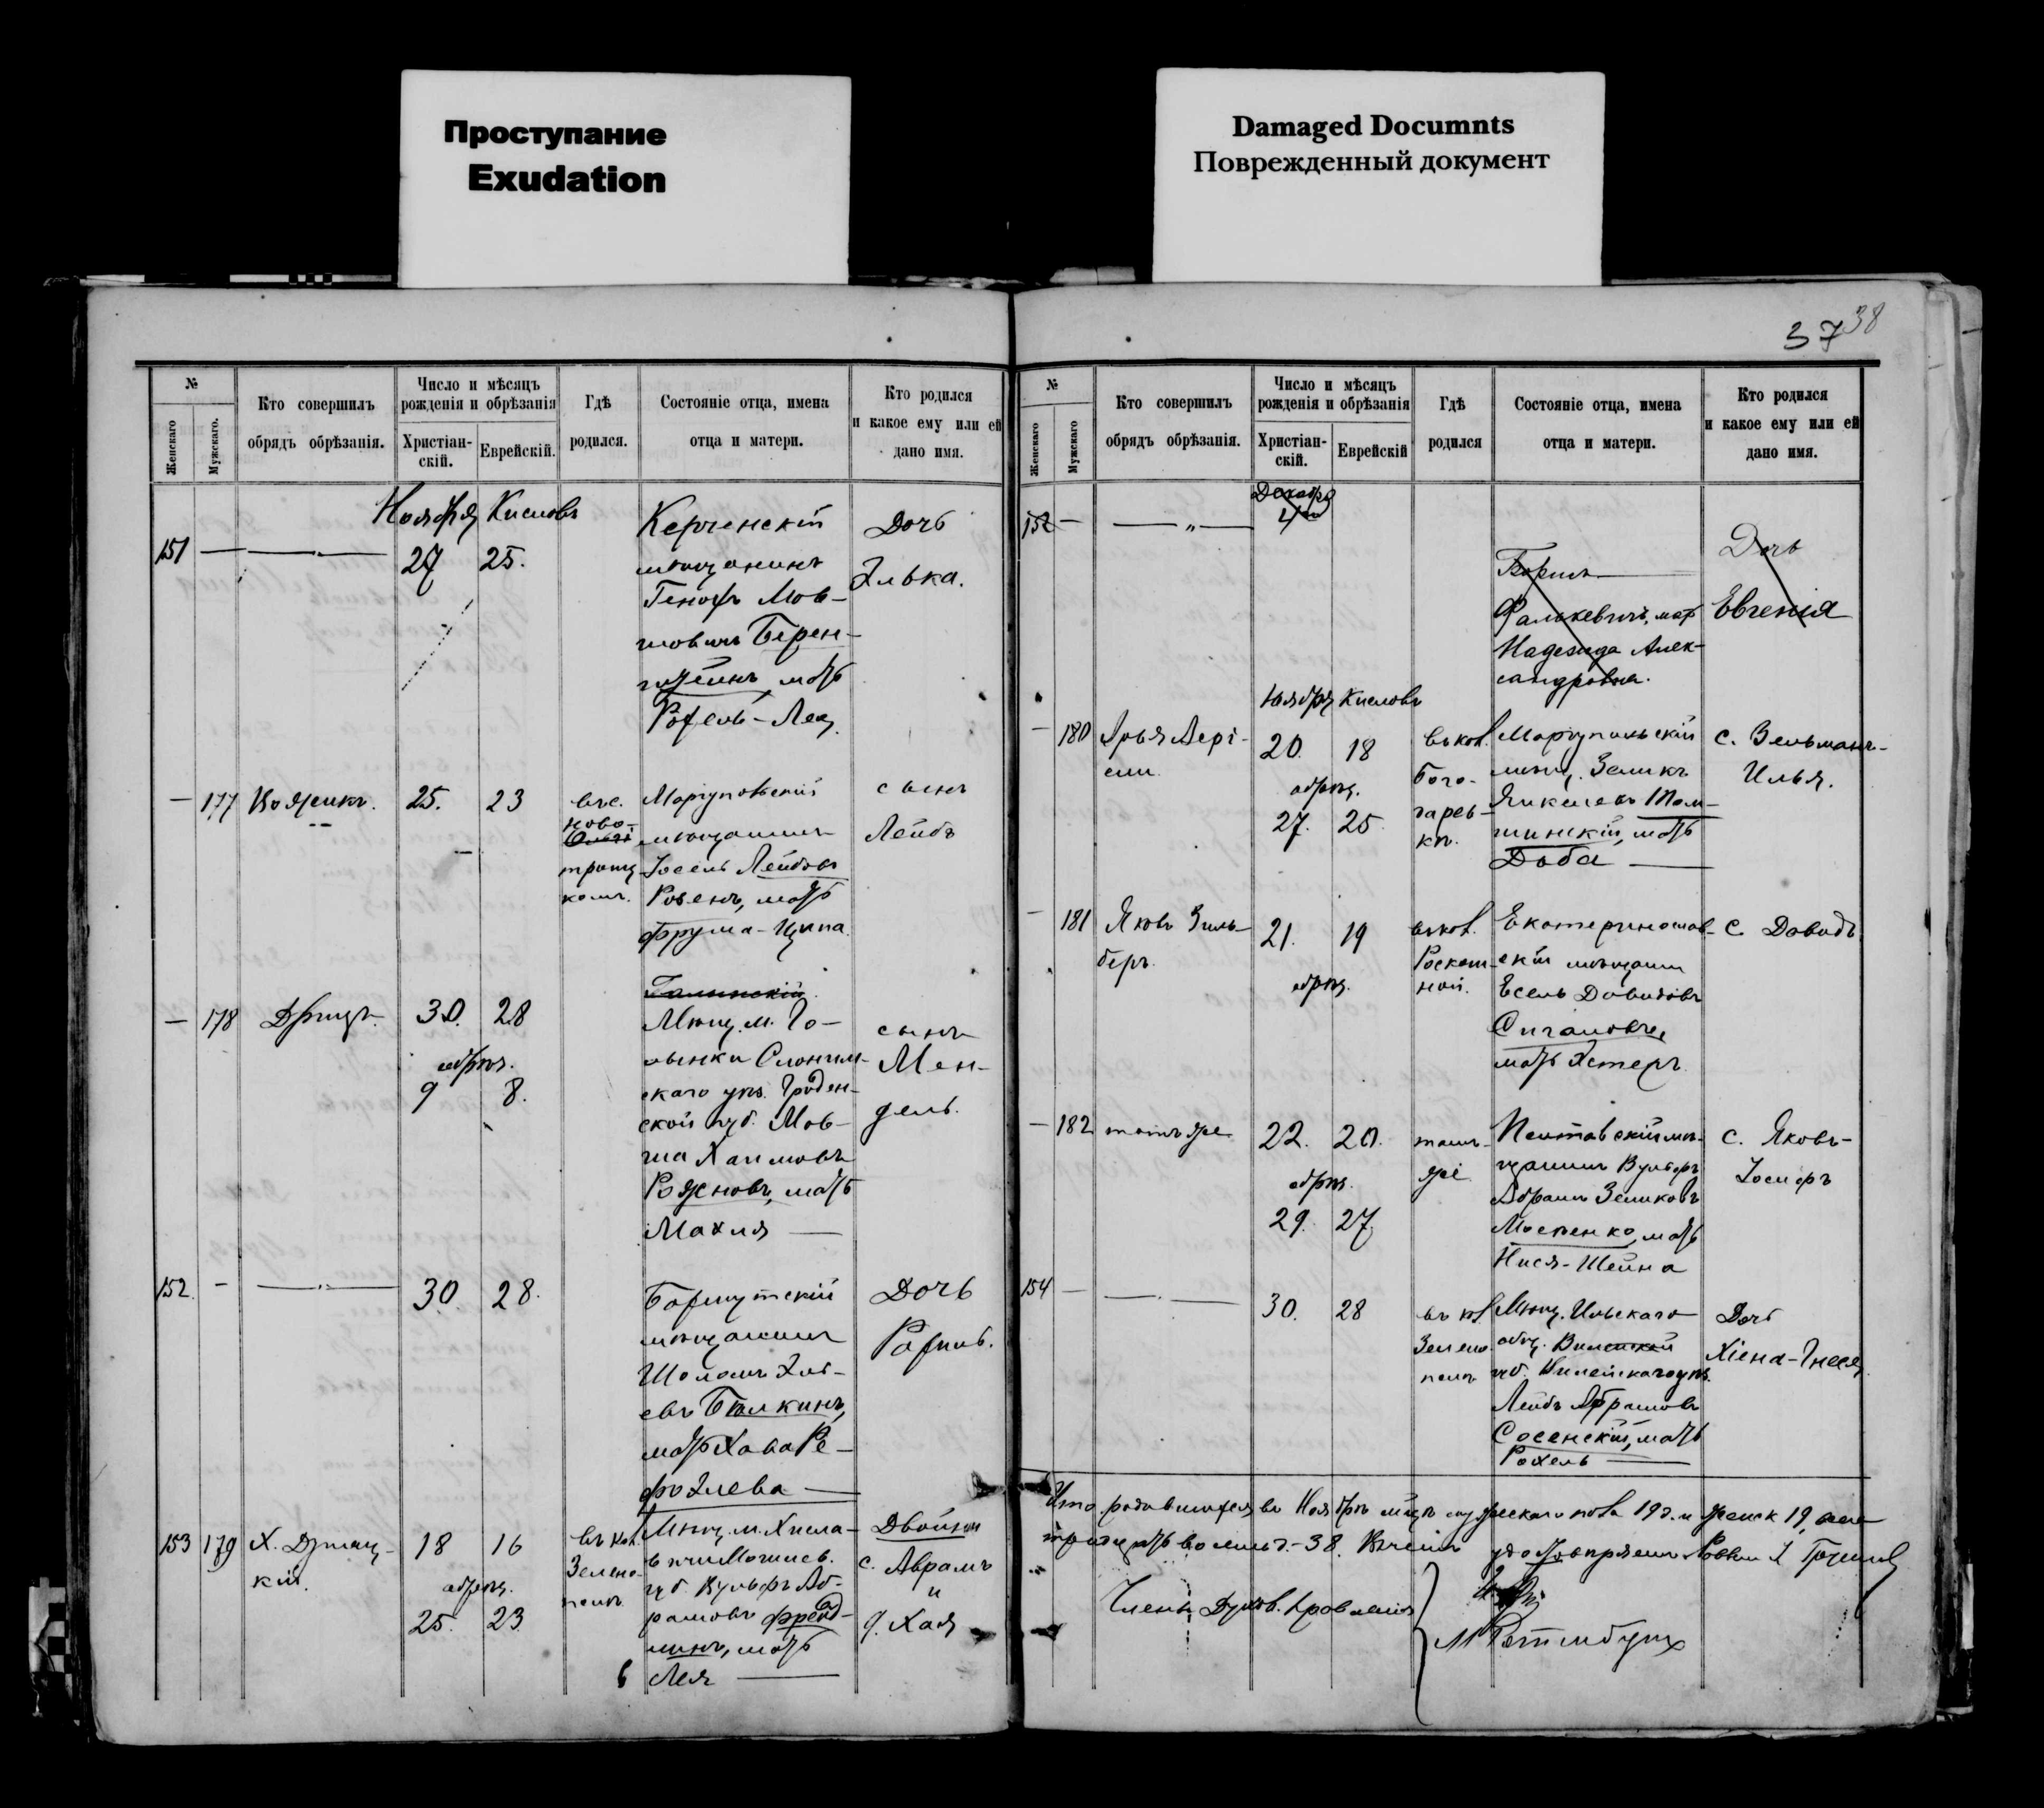 Проступание
Exudation
Damaged Documnts
Поврежденный документ
37 38
№
Женскаго
Мужскаго.
Кто совершилъ
обрядъ обрѣзанія.
Число и мѣсяцъ
рожденія и обрѣзанія
Христіан-
скій.
Еврейскій.
Гдѣ
родился.
Состояніе отца, имена
отца и матери.
Кто родился
и какое ему или ей
дано имя.
Ноября Кислевъ
151 — — 27 25.
Керченскій
мѣщанинъ
Генохъ Мов-
шовичъ Берен-
штейнъ, мать
Рохель-Лея
Дочь
Элька.
— 177 25. 23
въ с.
ново-
троиц
комъ.
Маріупольскій
мѣщанинъ
Іосель Лейбовъ
Ровенъ, мать
Фрума-Ципа
сынъ
Лейбъ
— 178 30. 28
обрѣз.
9 8.
Мѣщ. м. Го-
лынки Слоним-
скаго уѣз. Гроден-
ской губ. Мов-
ша Хаимовъ
Роженовъ, мать
Махля —
сынъ
Мен-
дель.
152. — — 30. 28.
мѣщанинъ
Шоломъ Эль-
евъ Белкинъ,
мать Хава Ре-
фоэлева —
Дочь
Рахиль.
153 179 Х. 18 16
обрѣз.
25. 23
въ кол.
Зелено-
полѣ
Мѣщ. м. Хисла-
вичи Могилев.
губ. Вульфъ Аб-
рамовъ Фрейд-
линъ, мать
Лея —
Двойни
с. Аврамъ
и
д. Хая
№
Женскаго
Мужскаго
Кто совершилъ
обрядъ обрѣзанія.
Число и мѣсяцъ
рожденія и обрѣзанія
Христіан-
скій.
Еврейскій
Гдѣ
родился
Состояніе отца, имена
отца и матери.
Кто родился
и какое ему или ей
дано имя.
Декабря
152 — — „ —
Борисъ
Фалькевичъ, мать
Надежда Алек-
сандровна.
Дочь
Евгенія
Ноября Кислевъ
— 180 Арья 20. 18
обрѣз.
27. 25
въ кол.
Бога-
тарев-
кѣ.
Маріупольскій
мѣщ. Зеликъ
мать
Доба —
с. Зельманъ-
Илья.
— 181 Яковъ Зиль-
беръ. 21. 19
обрѣз.
въ кол.
Роскош-
ной.
Екатеринослав-
скій мѣщанин
Есель Давидовъ
мать Эстеръ
с. Давидъ
— 182 тотъ же 22. 20.
обрѣз.
29. 27
тамъ
же
Полтавскій мѣ-
щанинъ Вульфъ
Абрамъ Зеликовъ
мать
Нися-Шейна
с. Яковъ-
Іосифъ
154 — — 30. 28
въ кол.
Зелено
полѣ
Мѣщ. Ильскаго
общ. Виленской
губ. Вилейскаго уѣз.
Лейбъ Абрамовъ
Сосенскій, мать
Рохель —
Дочь
Хіена-Гнеся
родившихся въ Ноябрѣ мѣсяцѣ мужескаго пола 19 д. и женск 19, всего
тридцать восемь д. - 38.
Члены Духов. Правленія